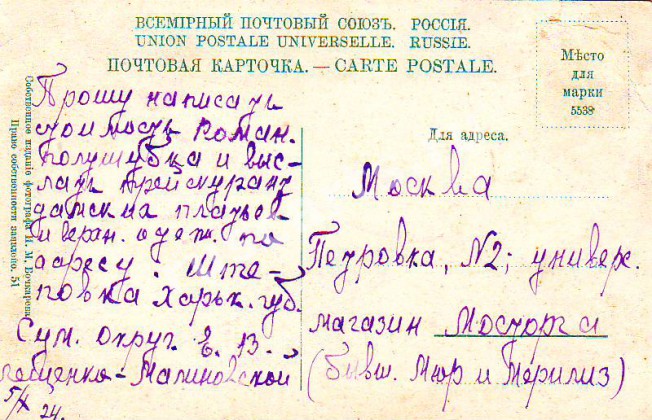 ВСЕМІРНЫЙ ПОЧТОВЫЙ СОЮЗЪ. РОССІЯ.
UNION POSTALE UNIVERSELLE. RUSSIE.
ПОЧТОВАЯ КАРТОЧКА. — CARTE POSTALE.
Мѣсто
для
марки
5538
Собственное изданіе фотографа И. М. Бочкарева.
Право собственности защищено. 51
Прошу написать
стоимость Роман.
полушубка и выс-
лать прейскурант
дамских платьев
и веран. одеж. по
адресу. Ште-
повка Харьк. губ.
Сум. округ. Е. В.
Лещенко-Малиновской
5/X 24.
Для адреса.
Москва
Петровка, №2; универ.
магазин Мосторга
(бывш. Мюр и Мерилиз)